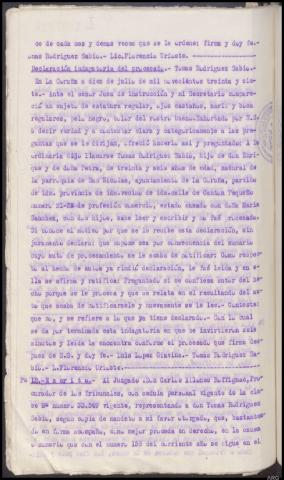 co de cada mes y demas veces que se le ordene: firma y doy fe.-
omas Rodriguez Sabio.- Lic.Florencio Urioste.-
Declaración indagatoria del procesado.- Tomas Rodriguez Sabio.-
En La Coruña a diez de julio de mil novecientos treinta y sie-
te.- Ante el señor Juez de instrucción y mi Secretario compare-
ció un sujeto de estatura regular, ojos castaños, nariz y boca
regulares, pelo negro, color del rostro bueno.Exhortado por S.S
a decir verdad y a contestar clara y categoricamente a las pre-
guntas que se le dirijan, ofreció hacerlo asi y preguntado: A lo
ordinario dijo llamarse Tomas Rodriguez Sabio, hijo de don Enri-
que y de doña Petra, de treinta y seis años de edad, natural de
la parroquia de San Nicolas, ayuntamiento de La Coruña, partido
de id. provincia de id.vecino de id.calle de Canton Pequeño
numero 21-22 de profesión comercio, estado casado con doña Maria
Sanchez, con dos hijos, sabe leer y escribir y no fué procesado.
Si conoce el motivo por que se le recibe esta declaración, sin
juramento declara: que supone sea por consecuencia del sumario
cuyo auto de procesamiento se le acaba de notificar: Como respec-
to al hecho de autos ya rindió declaración, le fué leida y en e-
lla se afirma y ratifica: Preguntado si se confiesa autor del he-
cho porque se le procesa y que se relata en el resultando del au-
to que acaba de notificarsele y nuevamente se le lee.- Contesta:
que no, y se refiere a lo que ya tiene declarado.- Con lo cual
se da por terminada esta indagatoria en que se invirtieron seis
minutos y leida la encuentra conforme el procesado que firma des-
pues de S.S. y doy fe.- Luis Lopez Tomas Rodriguez Sa-
bio.- L.Florencio Urioste.-
Escrito.- Al Juzgado .Don Carlos Allones Buffignac,Pro-
curador de los Tribunales, con cedula personal vigente de la cla-
se 9ª numero vigente, representando a don Tomas Rodriguez
Sabio, segun copia de mandato a mi favor otorgado, que, bastantea-
do en forma acompaña, como mejor proceda en derecho, en la causa
o sumario que con el numero 155 del corriente año se sigue en el